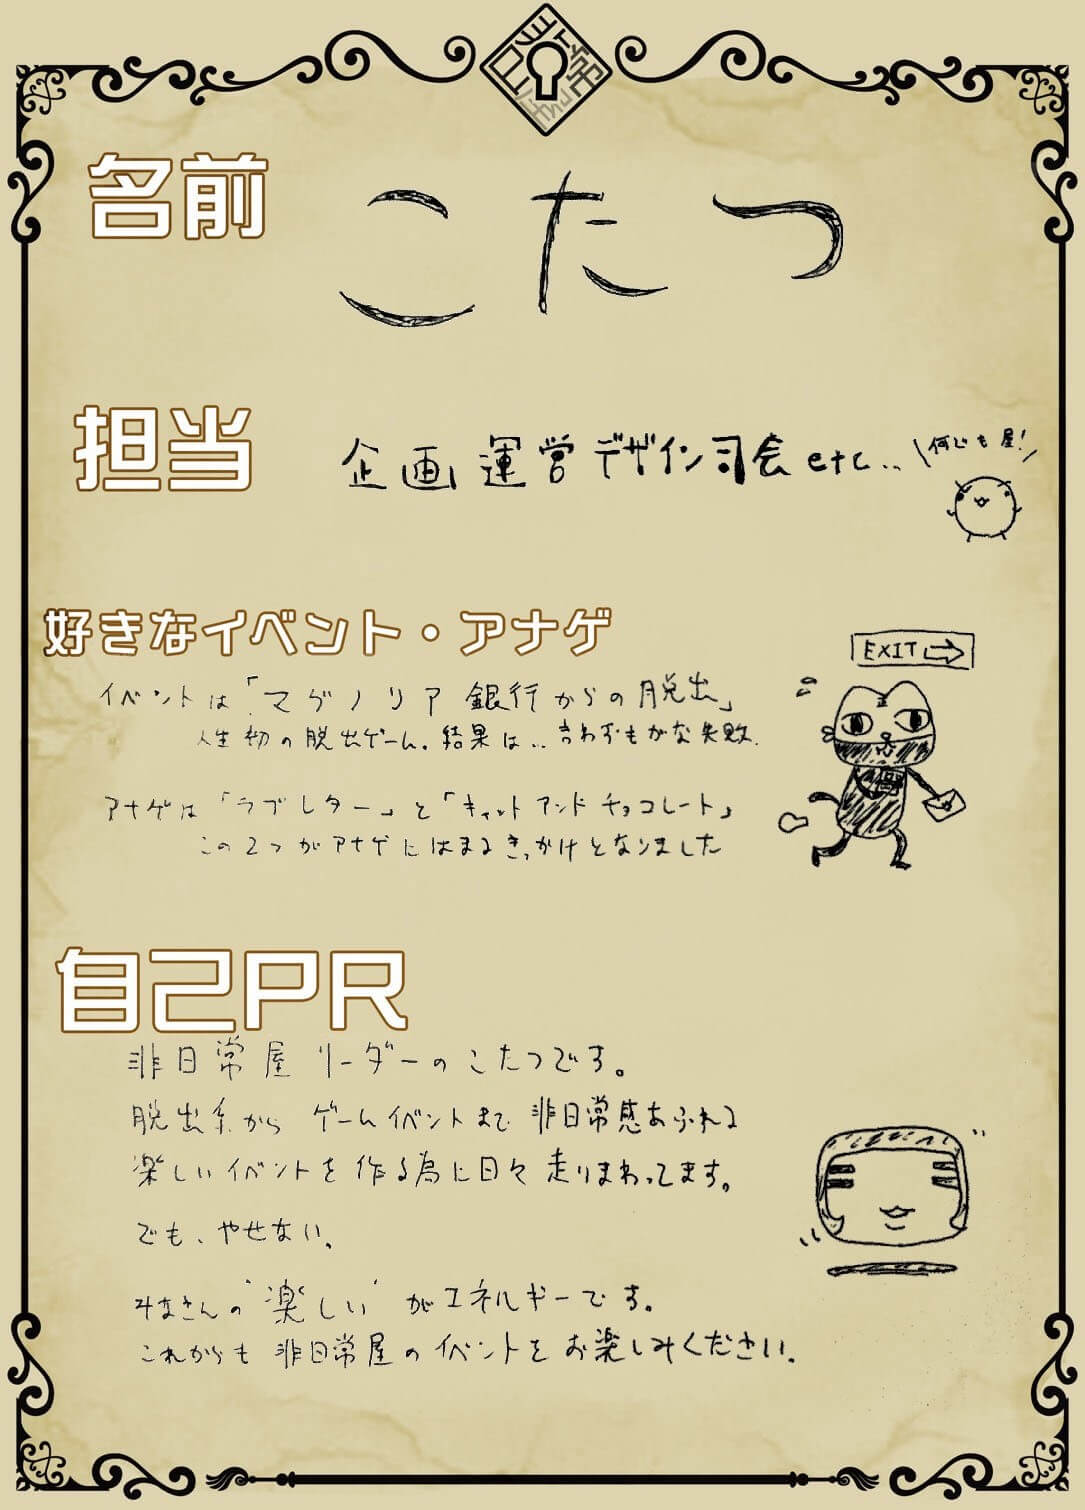 名前
こたつ
担当
企画 運営 デザイン 司会 etc...
何じも屋!
好きなイベント・アナゲ
イベントは「マグノリア銀行からの脱出」
人生初の脱出ゲーム。結果は...言わずもがな失敗.
EXIT
アナゲは「ラブレター」と「キャットアンドチョコレート」
この2つがアナゲにはまるきっかけとなりました
自己PR
非日常屋 リーダーのこたつです。
脱出系から ゲームイベントまで 非日常感あふれる
楽しいイベントを作る為に日々走りまわってます。
でも、やせない。
みなさんの"楽しい"がエネルギーです。
これからも 非日常屋のイベントをお楽しみください.